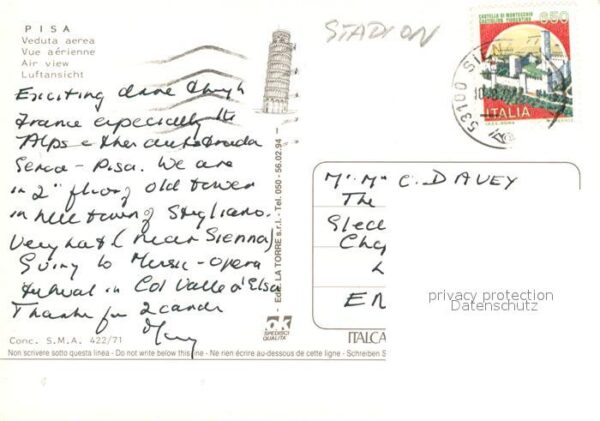 PISA
Veduta aerea
Vue aérienne
Air view
Luftansicht
STADION
CASTELLO DI MONTECCHIO
CASTIGLION FIORENTINO
650
ITALIA
53100 SIENA
Exciting drive though
France especially the
Alps & then autostrada
Genoa - Pisa. We are
in 2nd floor of old tower
in hill town of Stigliano.
Very hot (near Sienna)
Going to Music - opera
festival in Col Valle d'Elsa
Thanks for 2 cards
Mary
Ediz. LA TORRE s.r.l. - Tel. 050 - 56.02.94 -
Mr. Mrs C. DAVEY
The
Glec
Cha
L
EN
privacy protection
Datenschutz
SPEDISCI
QUALITA'
ITALCA
Conc. S.M.A. 422/71
Non scrivere sotto questa linea - Do not write below this line - Ne rien écrire au-dessous de cette ligne - Schreiben S